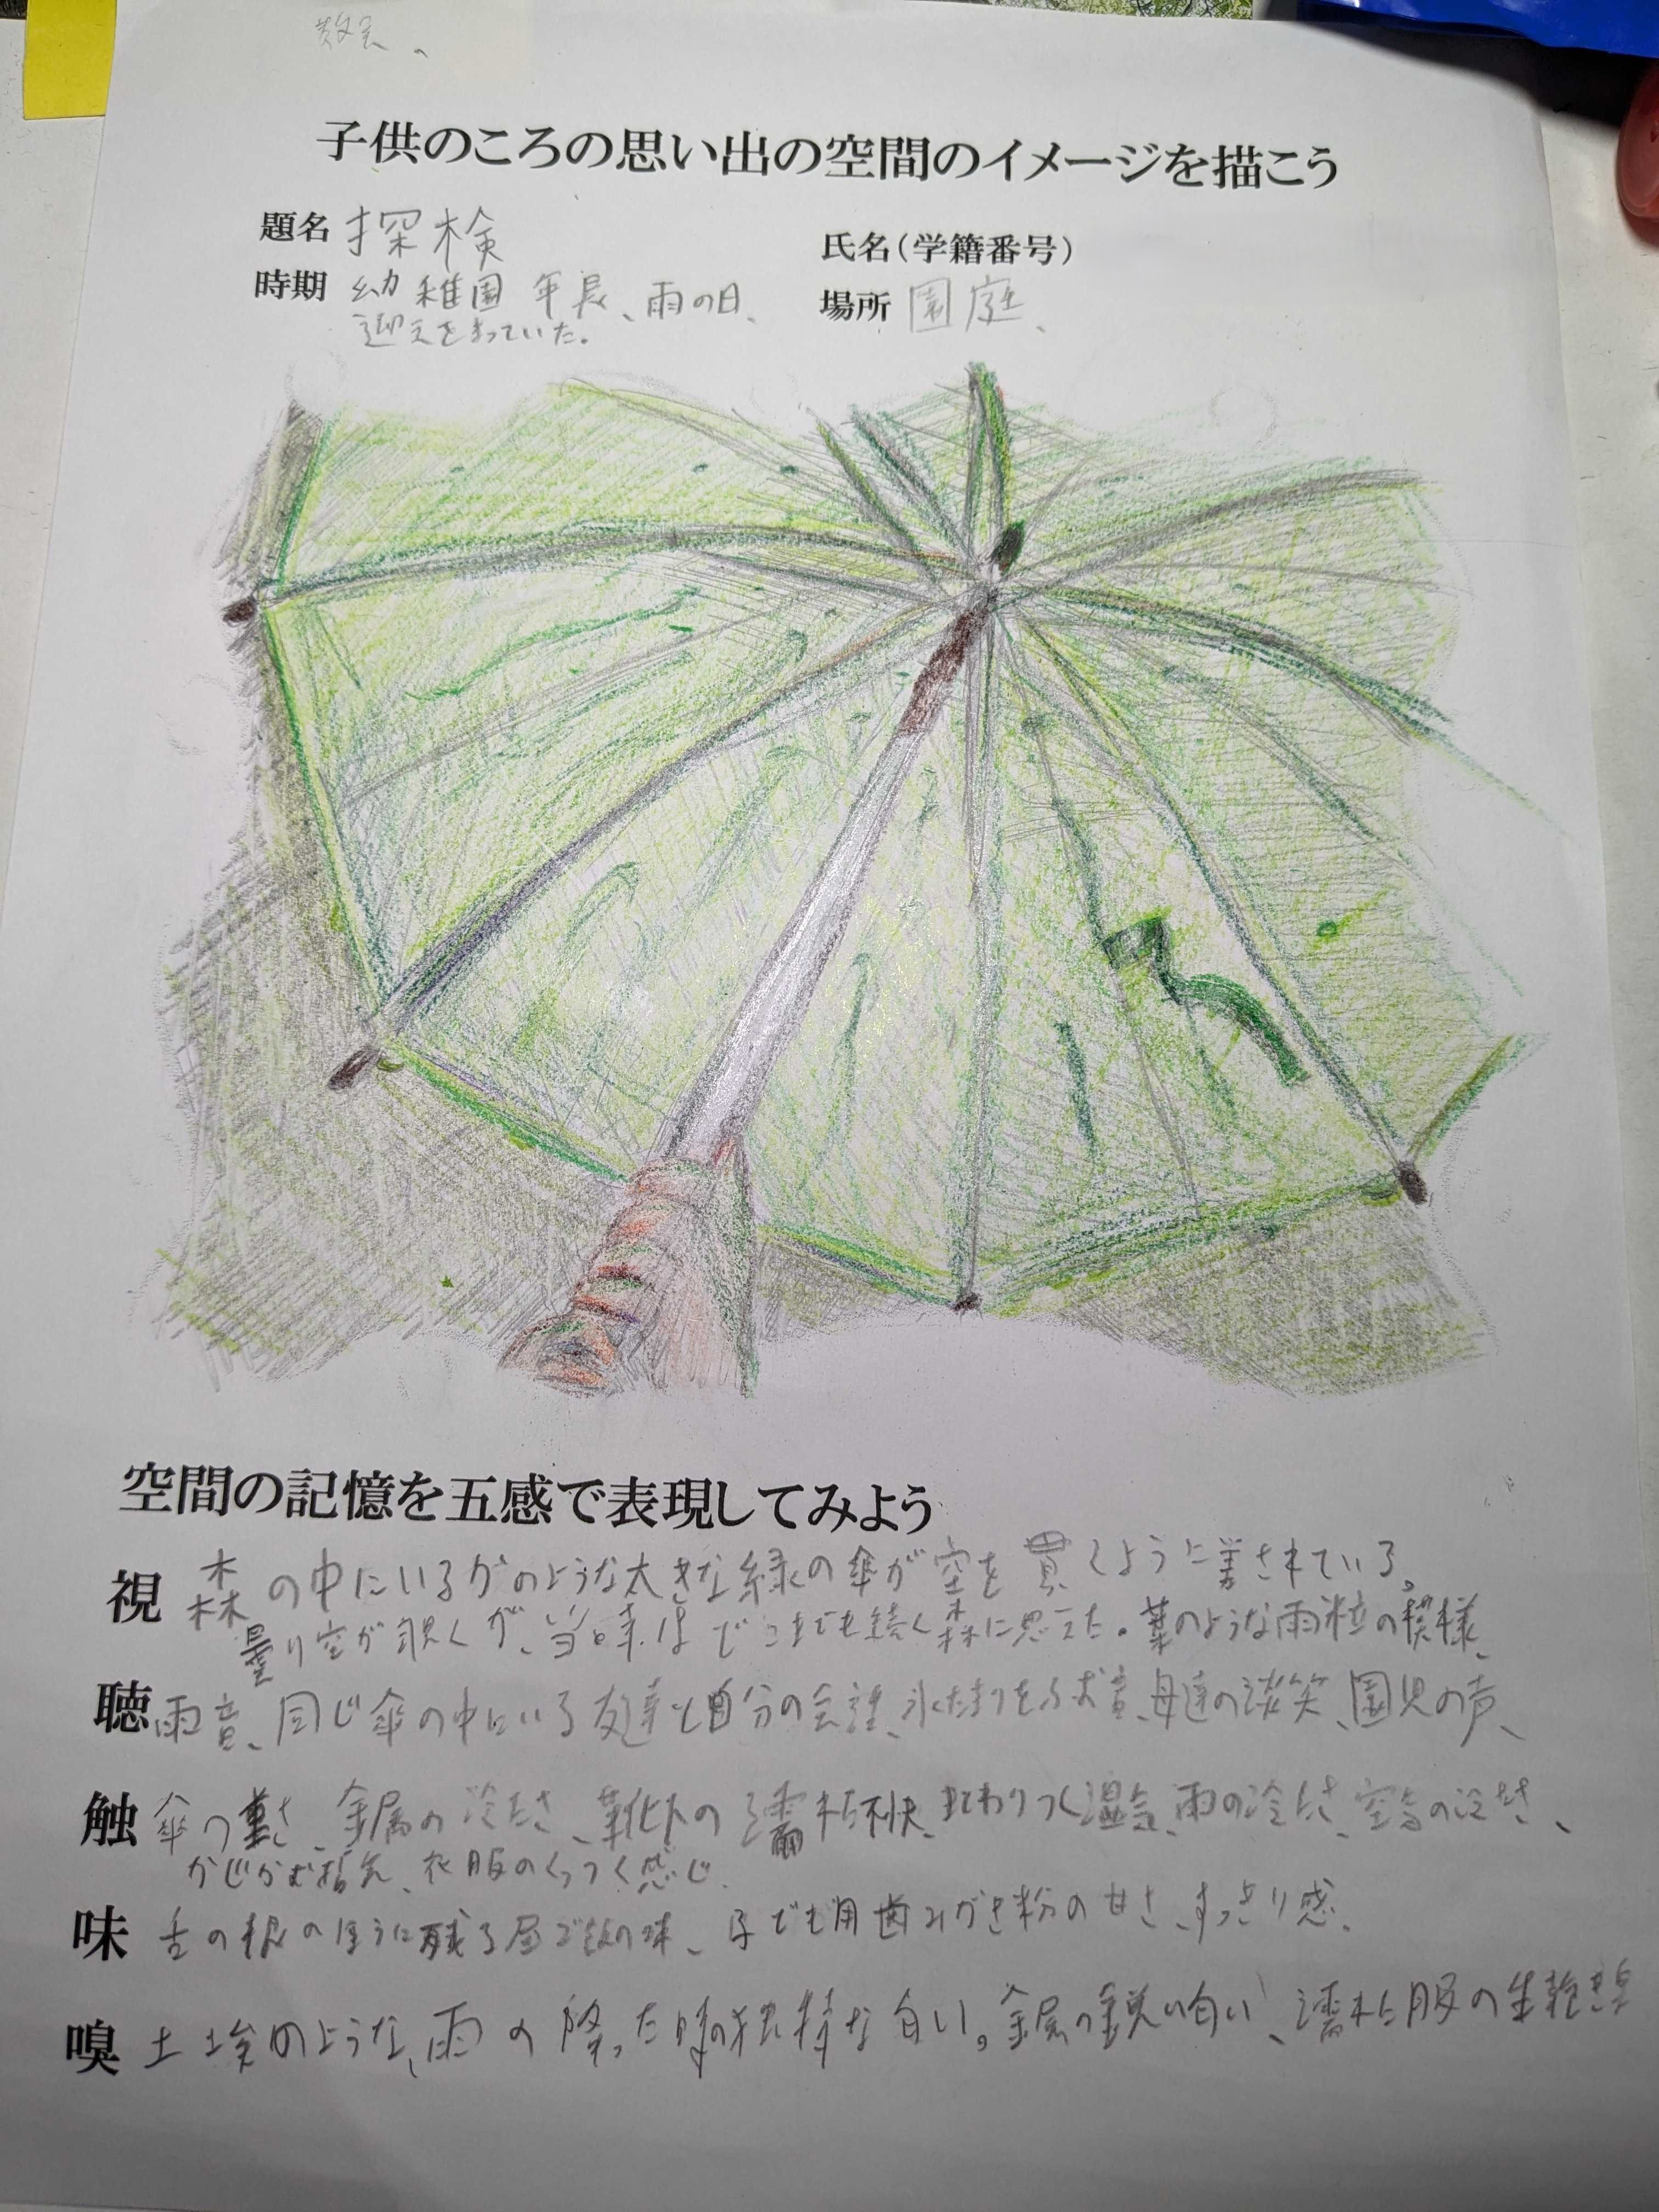 子供のころの思い出の空間のイメージを描こう
題名 探検
氏名(学籍番号)
時期 幼稚園 年長、雨の日、
迎えをまっていた。
場所 園庭、
空間の記憶を五感で表現してみよう
視 森の中にいるかのような大きな緑の傘が空を貫くように差されている。
曇り空が覗くが、当時はどこまでも続く森に思えた。葉のような雨粒の模様、
聴 雨音、同じ傘の中にいる友達と自分の会話、水たまりをふむ音、母達の談笑、園児の声、
触 傘の重さ、金属の冷たさ、靴下の濡れた不快、まとわりつく湿気、雨の冷たさ、空気の冷たさ、
かじかむ指先、衣服のくっつく感じ、
味 舌の根のほうに残る昼ご飯の味、子ども用歯みがき粉の甘さ、すっきり感、
嗅 土埃のような、雨の降った時の独特な匂い。金属の鋭い匂い、濡れた服の生乾き臭